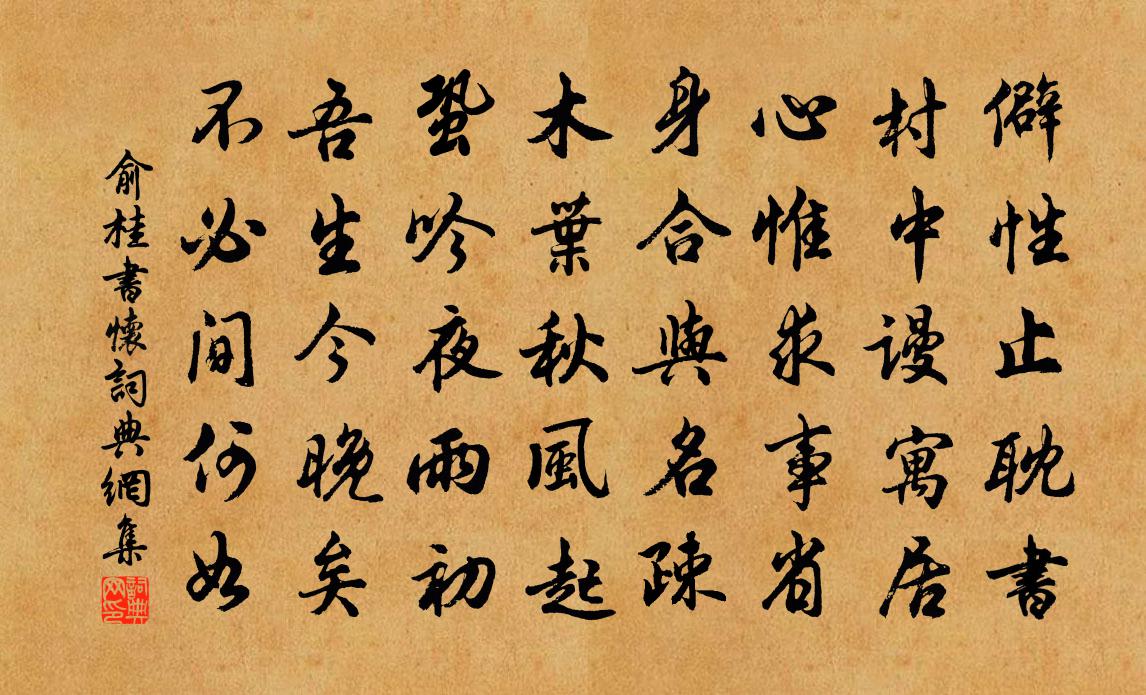 僻性止耽書
村中謾寓居
心惟求事省
身合與名疎
木葉秋風起
蛩吟夜雨初
吾生今晚矣
不必問何如
俞桂書懷詞典網集
詞典网印